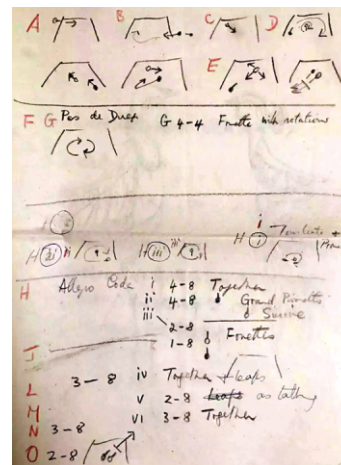 A B C D
E
F G Pas de Deux G 4-4 Fouetté with rotations
H iii H iii H i
H Allegro Coda i 4-8 Together
ii 4-8 Grand
iii
2-8 Fouettés
J 1-8
L 3-8 iv Together + leaps
M v 2-8 Leaps as talking
N 3-8 vi 3-8 Together
O 2-8